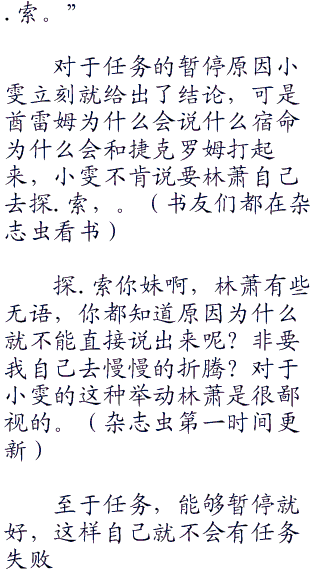 .索。”
对于任务的暂停原因小
雯立刻就给出了结论，可是
酋雷姆为什么会说什么宿命
为什么会和捷克罗姆打起
来，小雯不肯说要林萧自己
去探.索，。（书友们都在杂
志虫看书）
探.索你妹啊，林萧有些
无语，你都知道原因为什么
就不能直接说出来呢？非要
我自己去慢慢的折腾？对于
小雯的这种举动林萧是很鄙
视的。（杂志虫第一时间更
新）
至于任务，能够暂停就
好，这样自己就不会有任务
失败